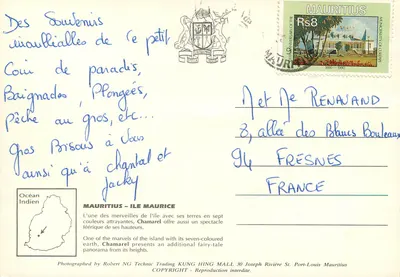 Des Souvenirs
inoubliables de ce petit
Coin de paradis,
Baignades, Plongées,
Pêche au gros, etc...
Gros Bisous à Vous
ainsi qu'à chantal et
Jacky
MAURITIUS
Rs8
M et Me RENAVAND
8, allée des Blancs Bouleaux
94 FRESNES
FRANCE
Océan
Indien
MAURITIUS - ILE MAURICE
L'une des merveilles de l'île avec ses terres en sept
couleurs attrayantes, Chamarel offre aussi un spectacle
féerique de ses hauteurs.
One of the marvels of the island with its seven-coloured
earth, Chamarel presents an additional fairy-tale
panorama from its heights.
Photographed by Robert NG Technic Trading KUNG HING MALL 30 Joseph Rivière St. Port-Louis Mauritius
COPYRIGHT - Reproduction interdite.